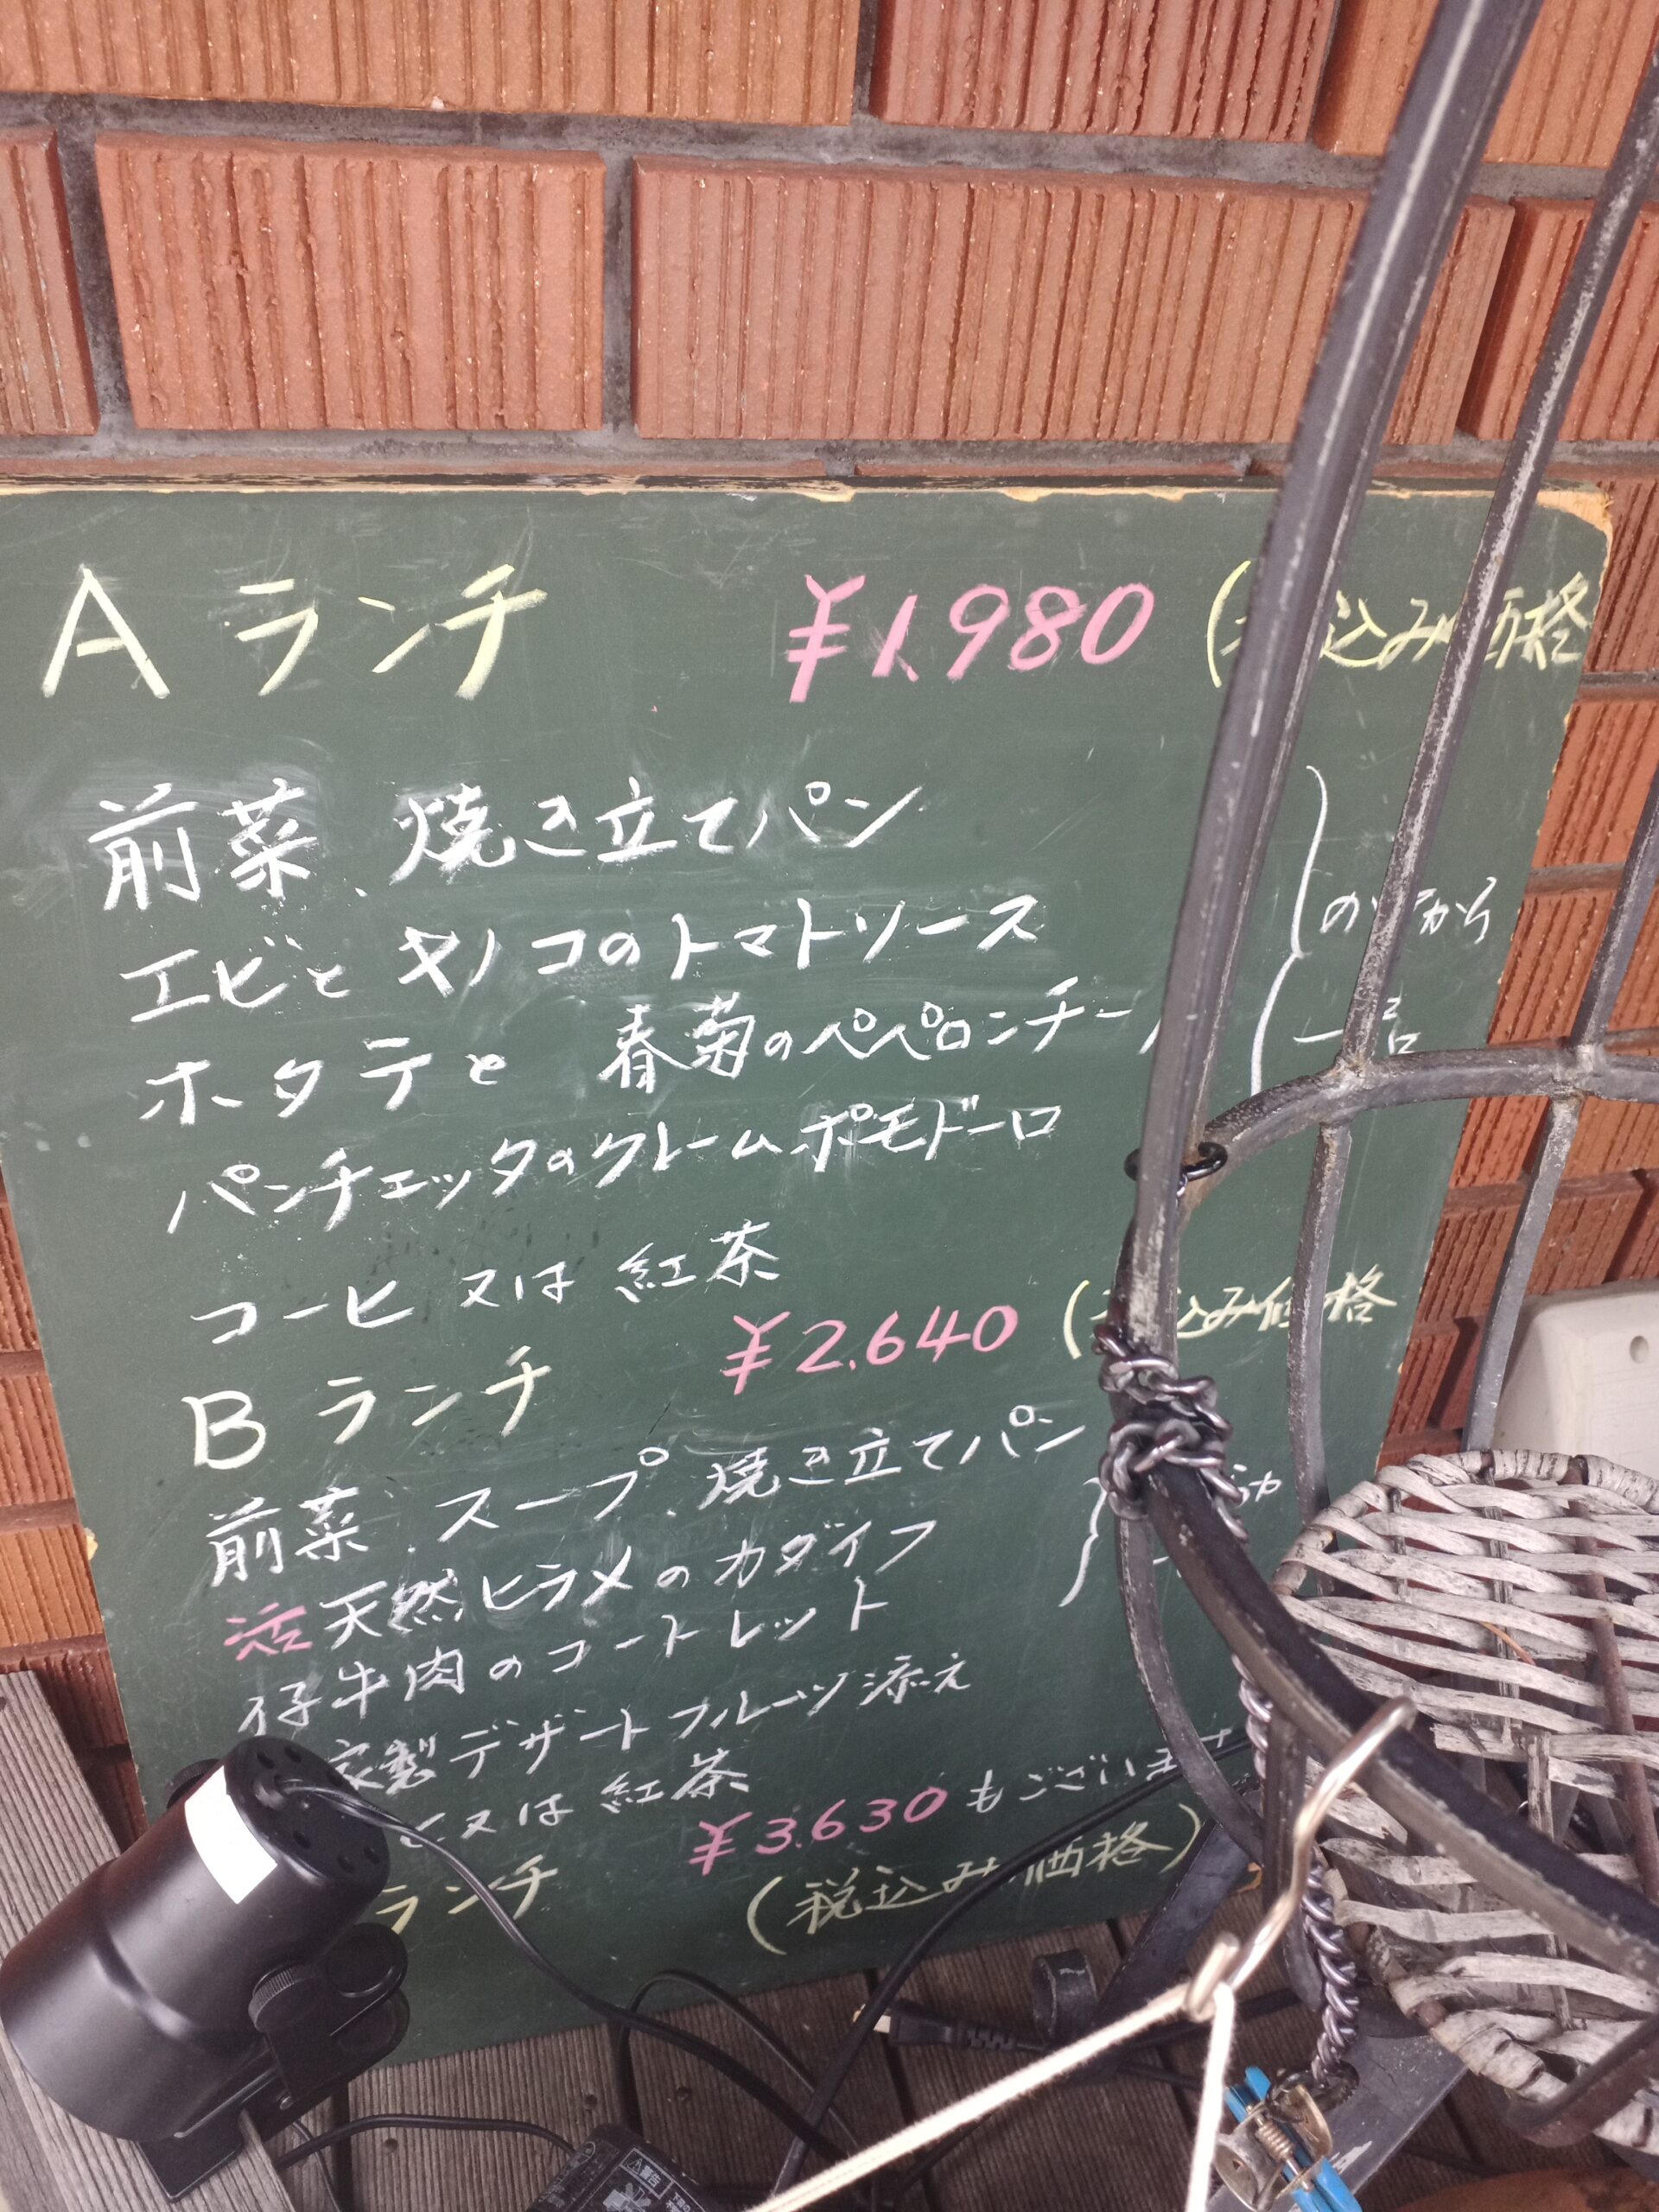 A ランチ ¥1,980 (税込み価格
前菜、焼き立てパン
エビと キノコのトマトソース
のから
ホタテと 春菊のペペロンチー
一
パンチェッタのクレームポモドーロ
コーヒ 又は 紅茶
B ランチ ¥2,640 (込み価格
前菜、スープ、焼き立てパン
活天然ヒラメのカダイフ
仔牛肉のコートレット
家製デザートフルーツ添え
ヒ又は 紅茶
ランチ ¥3,630 もございます
(税込み価格)
警告